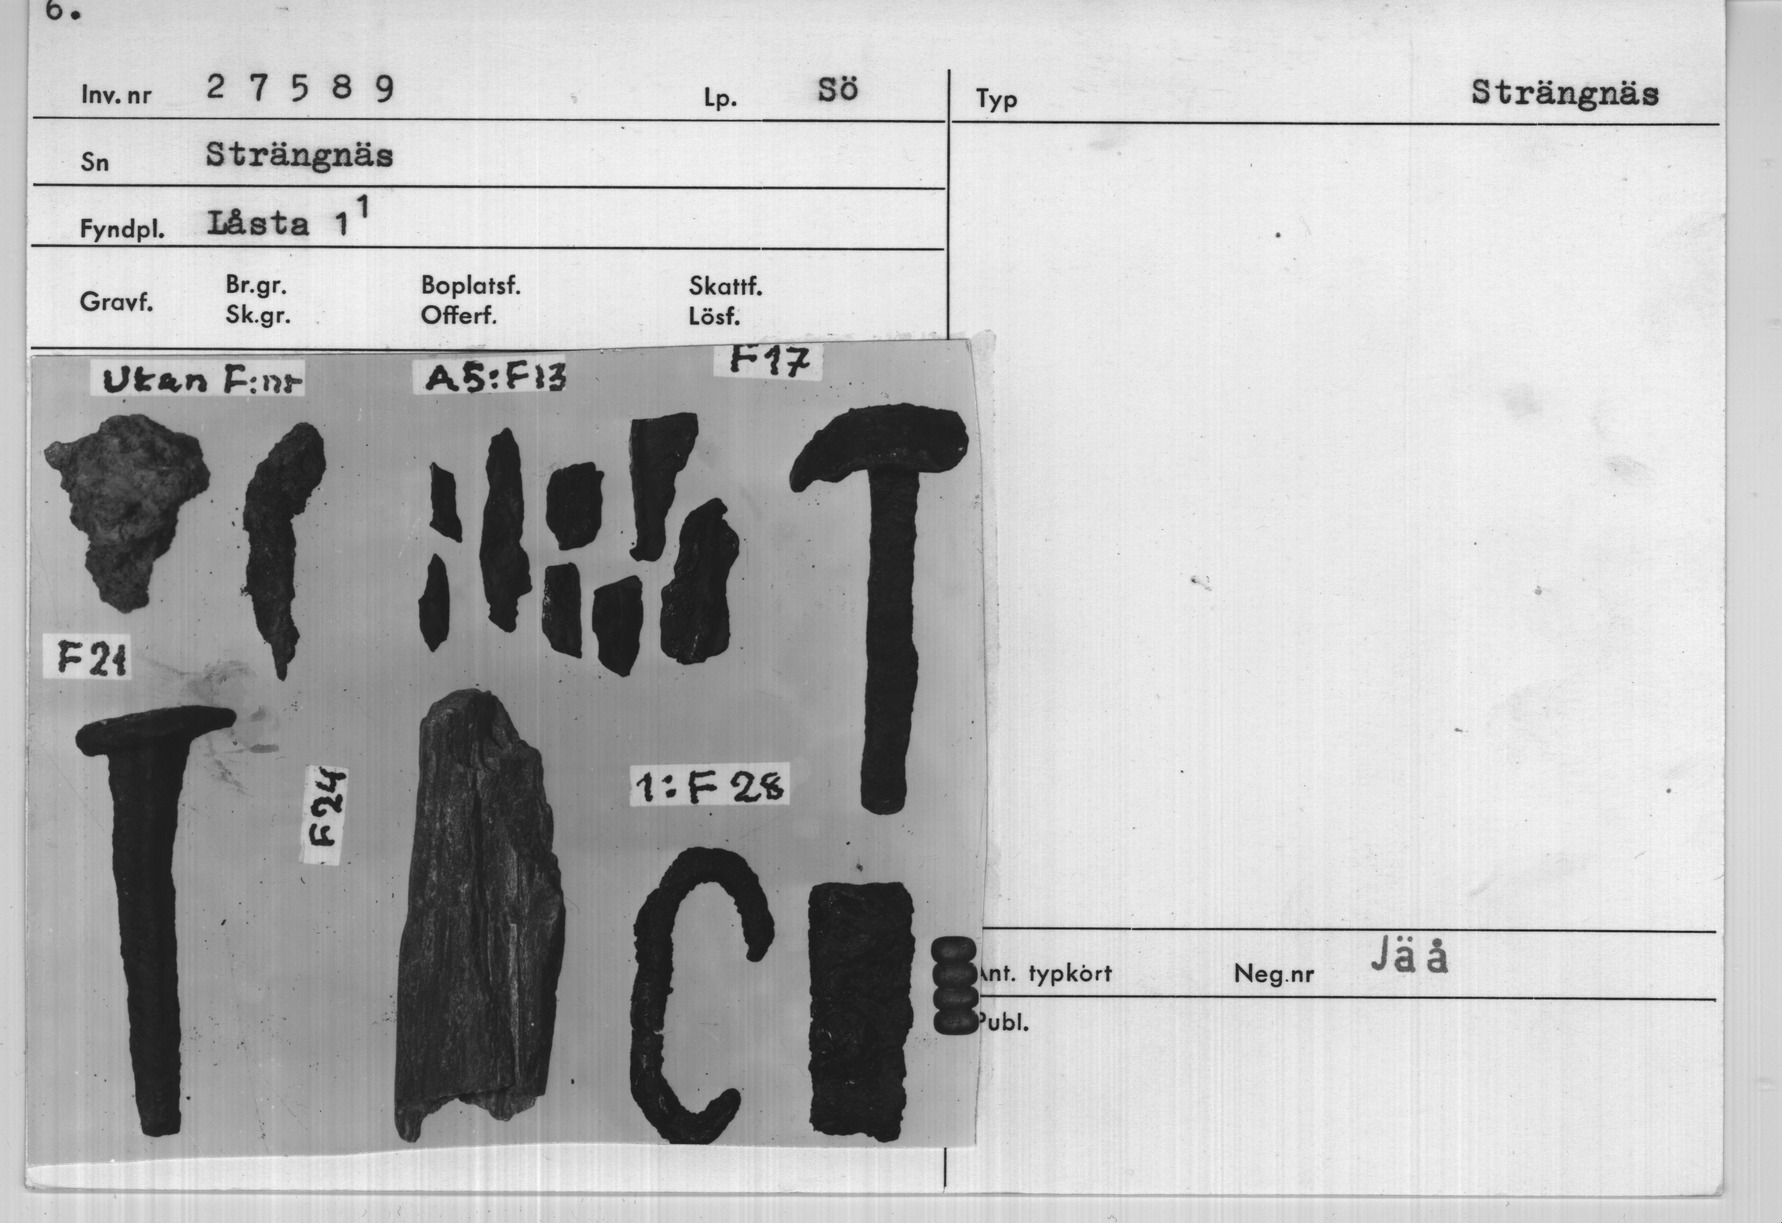 6.
Inv. nr 27589 Lp. Sö Typ Strängnäs
Sn Strängnäs
Fyndpl. Låsta 1¹
Gravf. Br.gr. Boplatsf. Skattf.
Sk.gr. Offerf. Lösf.
Utan F:nr A5:F13 F17
F21
F24
1:F28
Ant. typkort Neg.nr Jäå
Publ.